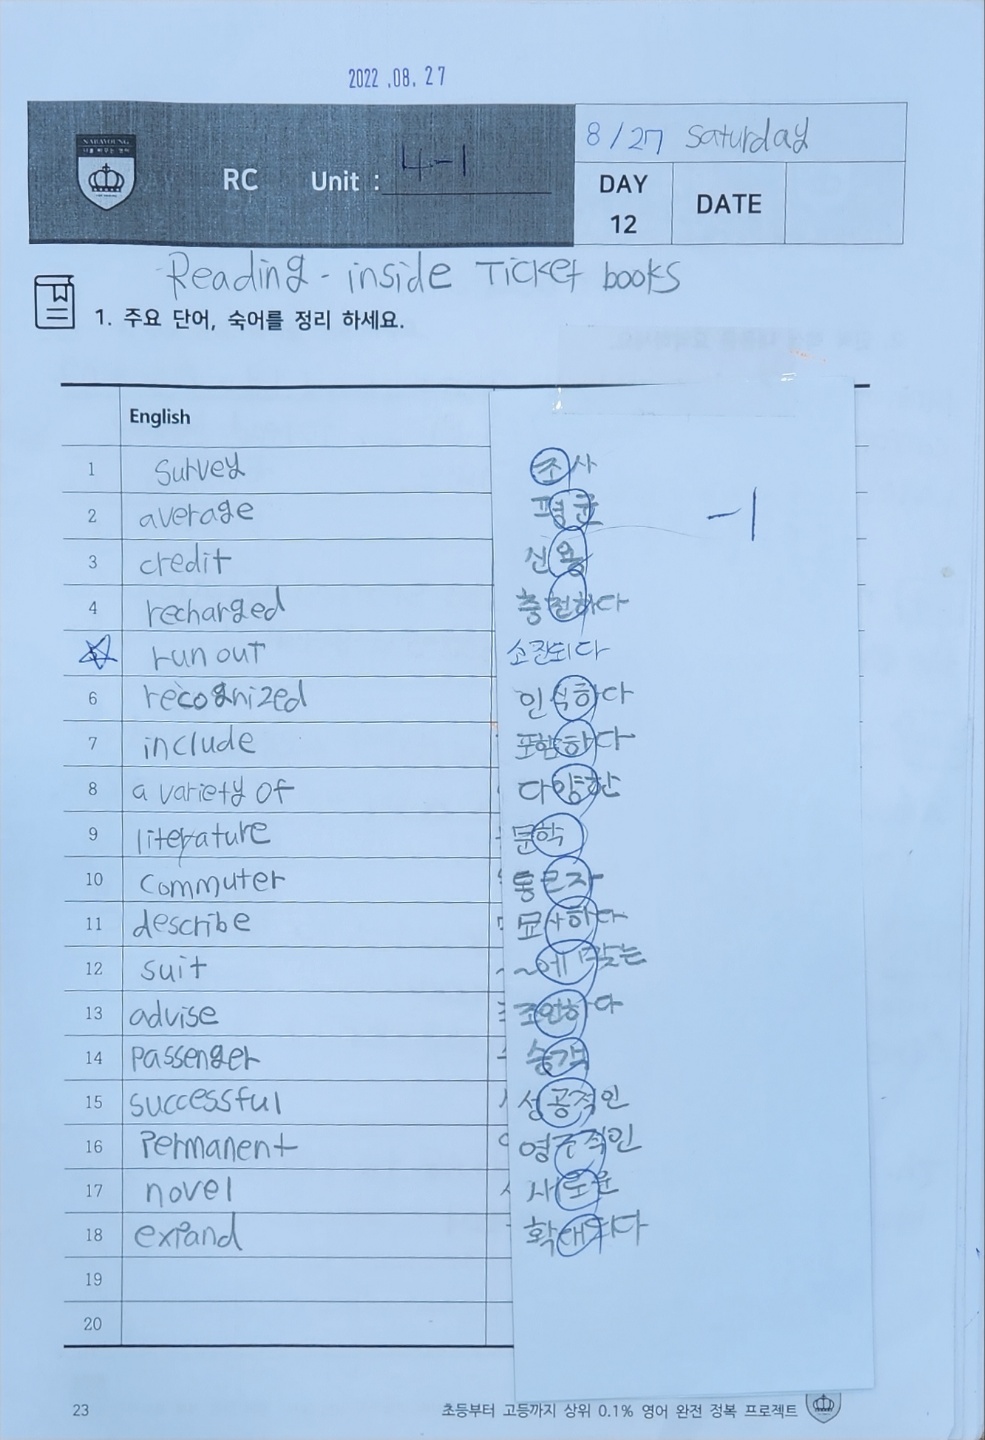 2022.08.27
NARAYOUNG
RC Unit : 4-1
8/27 Saturday
DAY 12 DATE
Reading - inside Ticket books
1. 주요 단어, 숙어를 정리 하세요.
English
1 survey 조사
2 average 평균
-1
3 credit 신용
4 recharged 충전하다
run out 소진되다
6 recognized 인식하다
7 include 포함하다
8 a variety of 다양한
9 literature 문학
10 commuter 통근자
11 describe 묘사하다
12 suit ~에 맞는
13 advise 조언하다
14 passenger 승객
15 successful 성공적인
16 permanent 영구적인
17 novel 새로운
18 expand 확대되다
19
20
23 초등부터 고등까지 상위 0.1% 영어 완전 정복 프로젝트